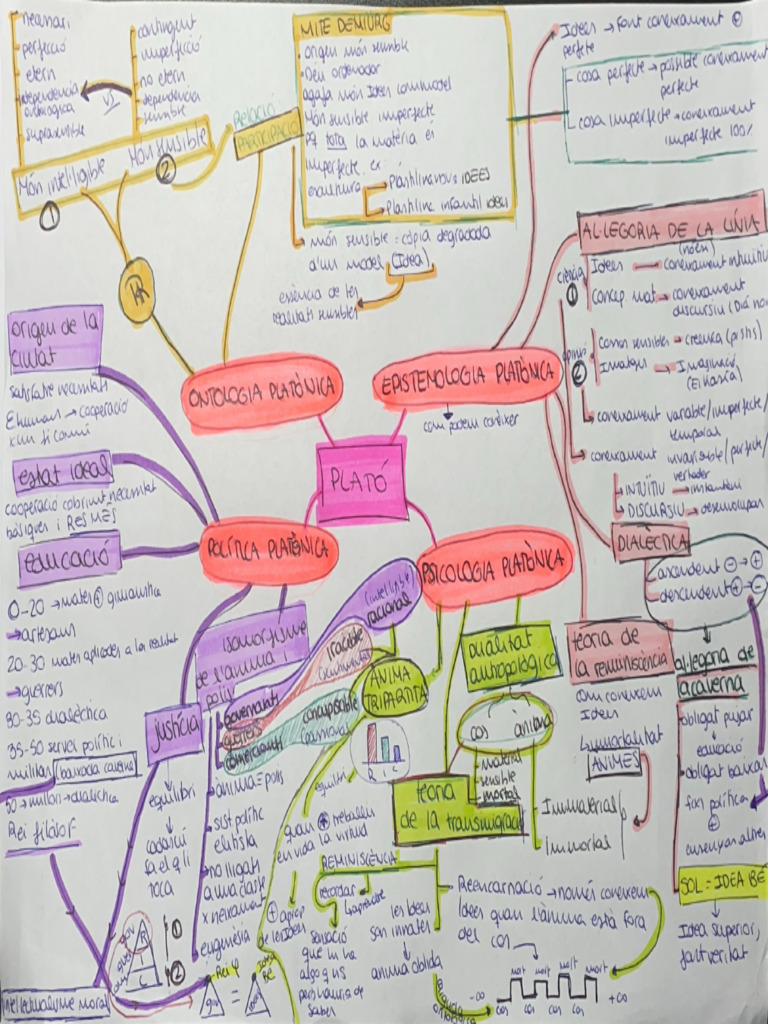 necessari
perfecció
etern
independència
ontològica
suprasensible
contingent
imperfecció
no etern
dependència
sensible
VS
Món intel·ligible
Món sensible
1
2
Relació
PARTICIPACIÓ
MITE DEMIURG
origen món sensible
Déu ordenador
agafa món Idees com model
Món sensible imperfecte
pq tota la matèria és
imperfecte. ex:
escultura
Plastilina nous IDEES
Plastiline infantil idees
món sensible = còpia degradada
d'un model (Idea)
essència de les
realitats sensibles
Idees → font coneixament ⊕
perfete
cosa perfecte → possible coneixament
perfecte
cosa imperfecte → coneixament
imperfecte 100%
AL·LEGORIA DE LA LÍNIA
ciència
1
Idees
(nóesi)
coneixament intuïtiu
Concep. mat
coneixament
discursiu
opinió
2
Coses sensibles → creença (pistis)
Imatges → Imaginació
(Eikasia)
coneixament variable/imperfecte/
temporal
coneixament invariable/perfecte/
vertader
INTUÏTIU → instantani
DISCURSIU → desenvolupar
DIALÈCTICA
ascendent ⊖ → ⊕
descendent ⊕ → ⊖
ONTOLOGIA PLATÒNICA
EPISTENOLOGIA PLATÒNICA
com podem conèixer
PLATÓ
POLÍTICA PLATÒNICA
PSICOLOGIA PLATÒNICA
origen de la
ciutat
satisfaure necessitats
È humans → cooperació
x un fi comú
estat ideal
cooperació cobrint necessitat
bàsiques i RES MÉS
educació
0-20 → mates ⊕ gimnastica
→ artesans
20-30 mates aplicades a la realitat
→ guerrers
30-35 dialèctica
35-50 servei polític i
militar
baixada caverna
50 → millors → dialèctica
Rei filòsof
Intel·lectualisme moral
justícia
equilibri
cadascú
fa el q li
toca
1
2
isomorfisme
de l'ànima i
polis
governants
guerrers
comerciants
(intel·ligible)
racional
irascible
concupiscible
ànima = polis
sist polític
elitista
no lligats
a una classe
x neixament
eugenèsia
ÀNIMA
TRIPARTITA
R I C
equilibri
dualitat
antropològica
cos
ànima
material
sensible
mortal
Immaterial
Immortal
teoria
de la transmigració
quan ⊕ treballem
en vida la virtud
⊕ aprop
de les Idees
REMINISCÈNCIA
recordar
aprendre
sensació
que hi ha
algo q ns
pensàvem
saber
les Idees
són innates
ànima oblida
Reencarnació → només coneixem
Idees quan l'ànima està fora
del cos
-∞
mort mort mort mort
cos cos cos cos
+∞
Rei φ
teoria de
la reminiscència
Com coneixem
Idees
Immortalitat
ÀNIMES
al·legoria de
la caverna
obligat pujar
educació
obligat baixar
fan política
⊕
ensenyar altres
SOL = IDEA BÉ
Idea superior,
font veritat